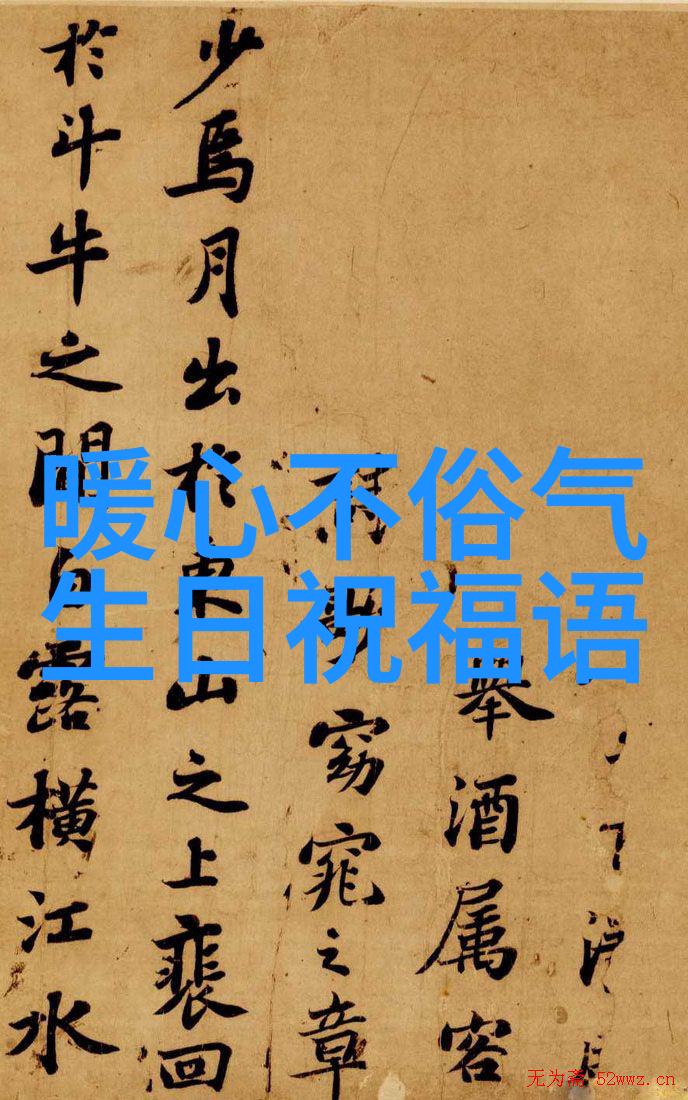 暖心不俗气
生日祝福语
舉酒属客
窈窕之章
少焉月出於東山之上裵回
於斗牛之間白露橫江水
无为斋 52wwz.cn